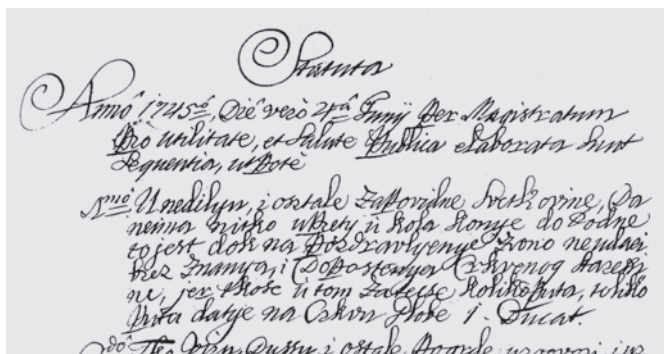 Statuta
Anno 1745to, Die vero 21ma Junÿ Per Magistratum
Pro utilitate, et Salute Publica elaborata Sunt
Sequentia, ut Pote
1mo Unedilyu, i ostale zapovidne Svetkovine, Da
neima nitko uprety u kola konye do podne
to jest dok na Pozdravlyenye zvono neudari
brez znanya, i Dopostenya Czkvenog
ne, jer tkose u tom zatecse koliko puta, toliko
puta datye na Czkvu Globe 1. Ducat.
2do i ostale